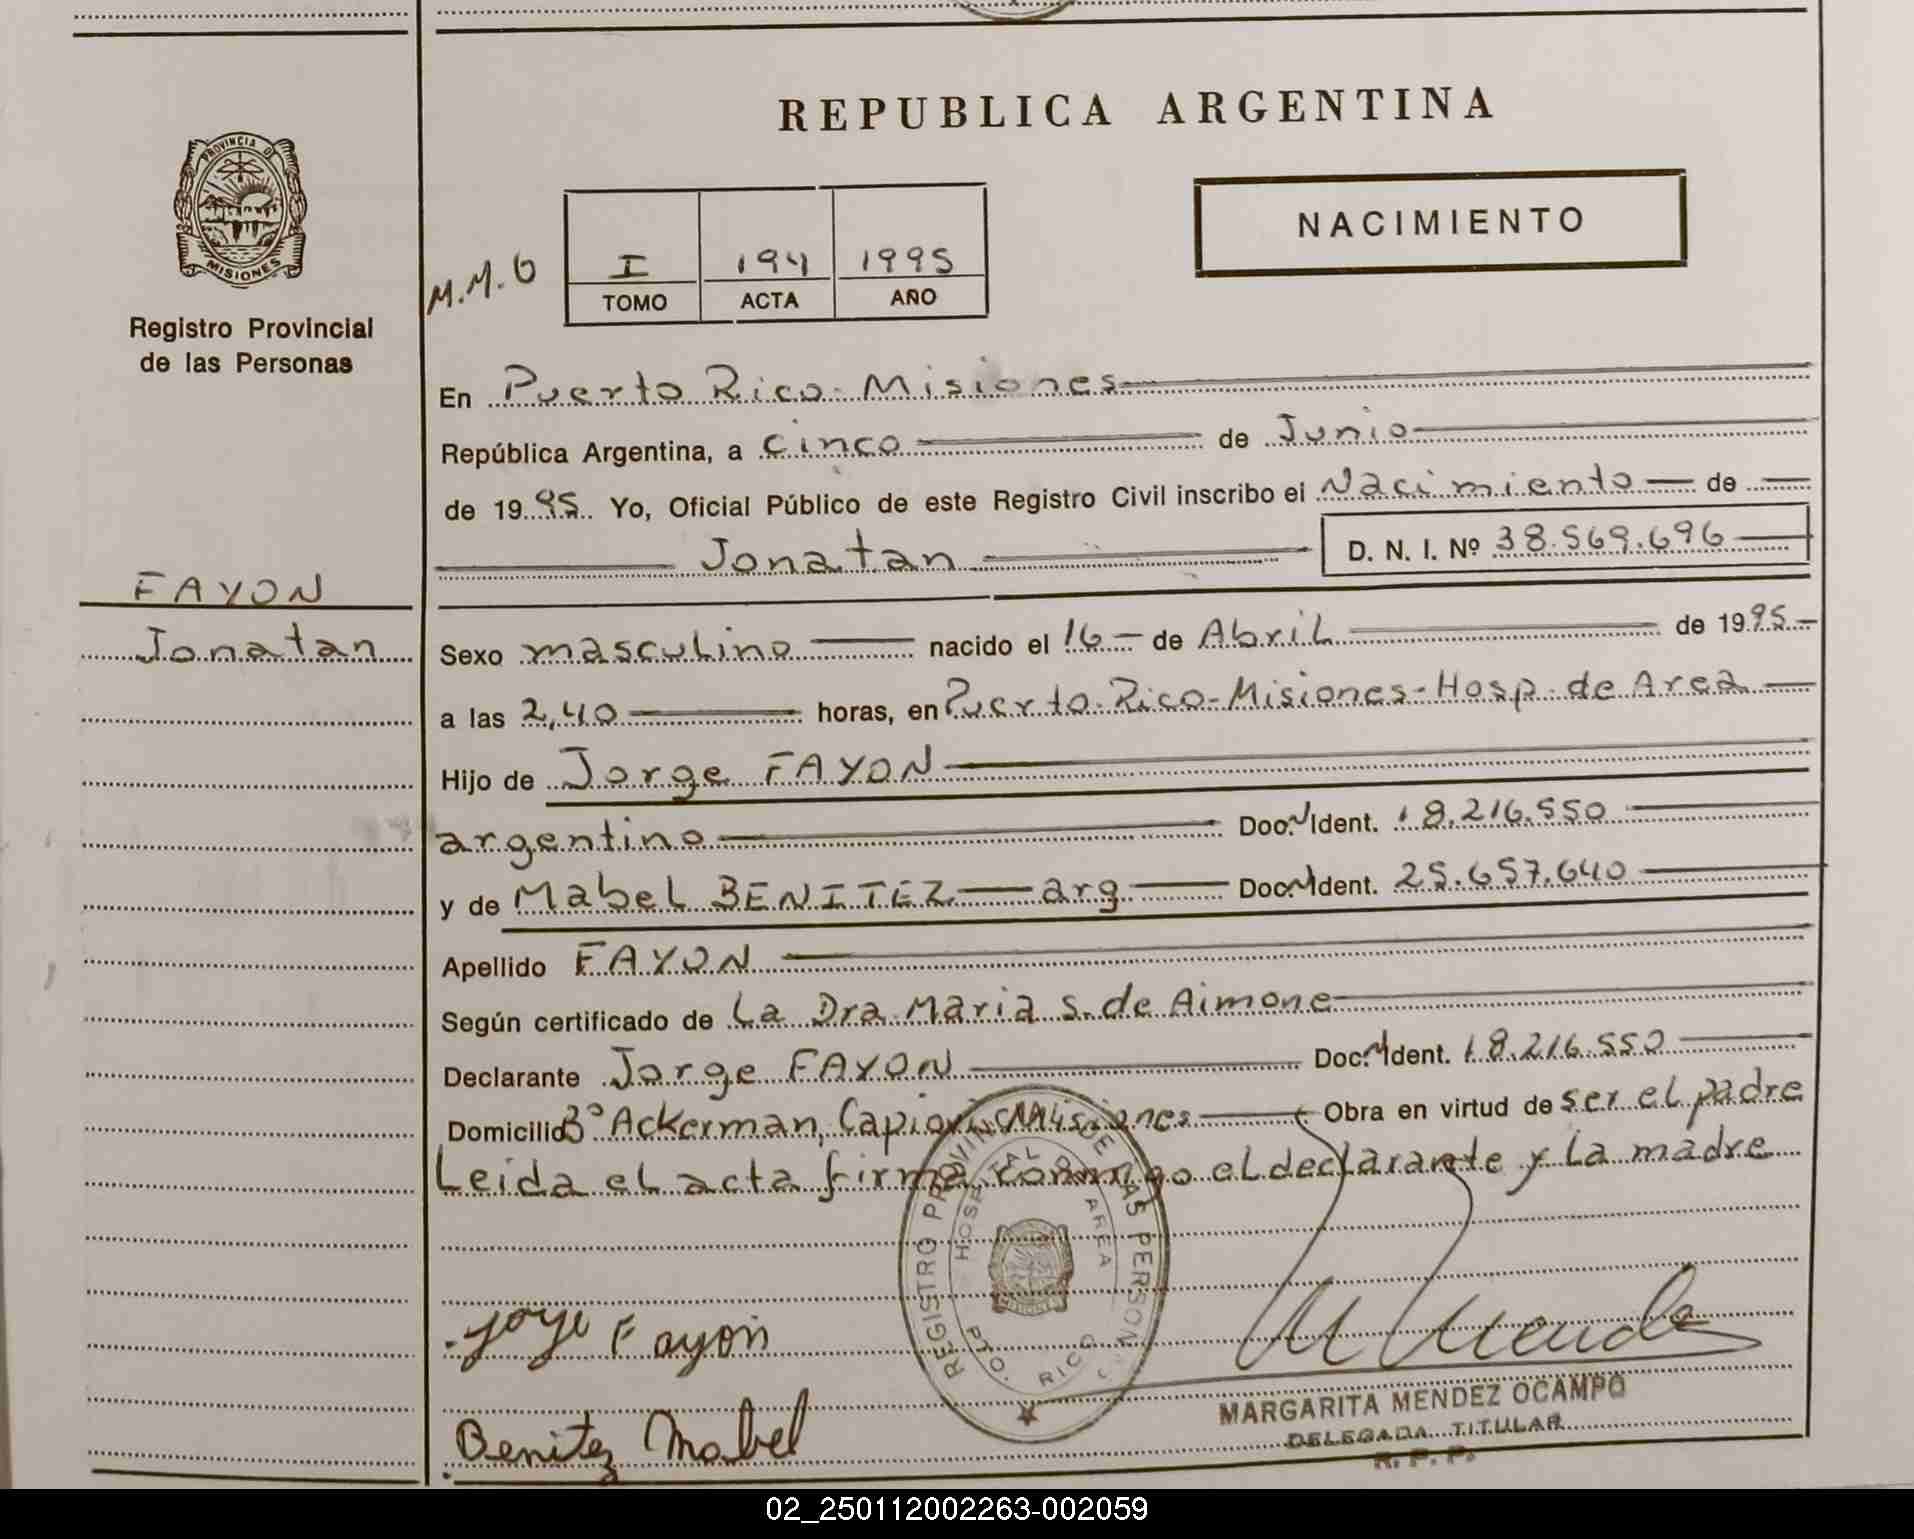 REPUBLICA ARGENTINA
PROVINCIA D
MISIONES
Registro Provincial
de las Personas
NACIMIENTO
M.M.O
I 194 1995
TOMO ACTA AÑO
En Puerto Rico - Misiones
República Argentina, a cinco de Junio
de 1995. Yo, Oficial Público de este Registro Civil inscribo el Nacimiento de
Jonatan D. N. I. Nº 38.569.696
FAYON
Jonatan
Sexo masculino nacido el 16 - de Abril de 1995
a las 2,40 horas, en Puerto Rico - Misiones - Hosp. de Area
Hijo de Jorge FAYON
argentino Doc. N Ident. 18.216.550
y de Mabel BENITEZ arg Doc. N Ident. 25.657.640
Apellido FAYON
Según certificado de La Dra Maria S. de Aimone
Declarante Jorge FAYON Doc. N Ident. 18.216.550
Domicilio Bº Ackerman, Capiovi, Misiones Obra en virtud de ser el padre
Leida el acta firma conmigo el declarante y La madre
REGISTRO PROVINCIAL DE LAS PERSONAS
HOSPITAL DE AREA
PTO. RICO
Jorge Fayon
MARGARITA MENDEZ OCAMPO
DELEGADA TITULAR
R. P. P.
Benitez Mabel
02_250112002263-002059